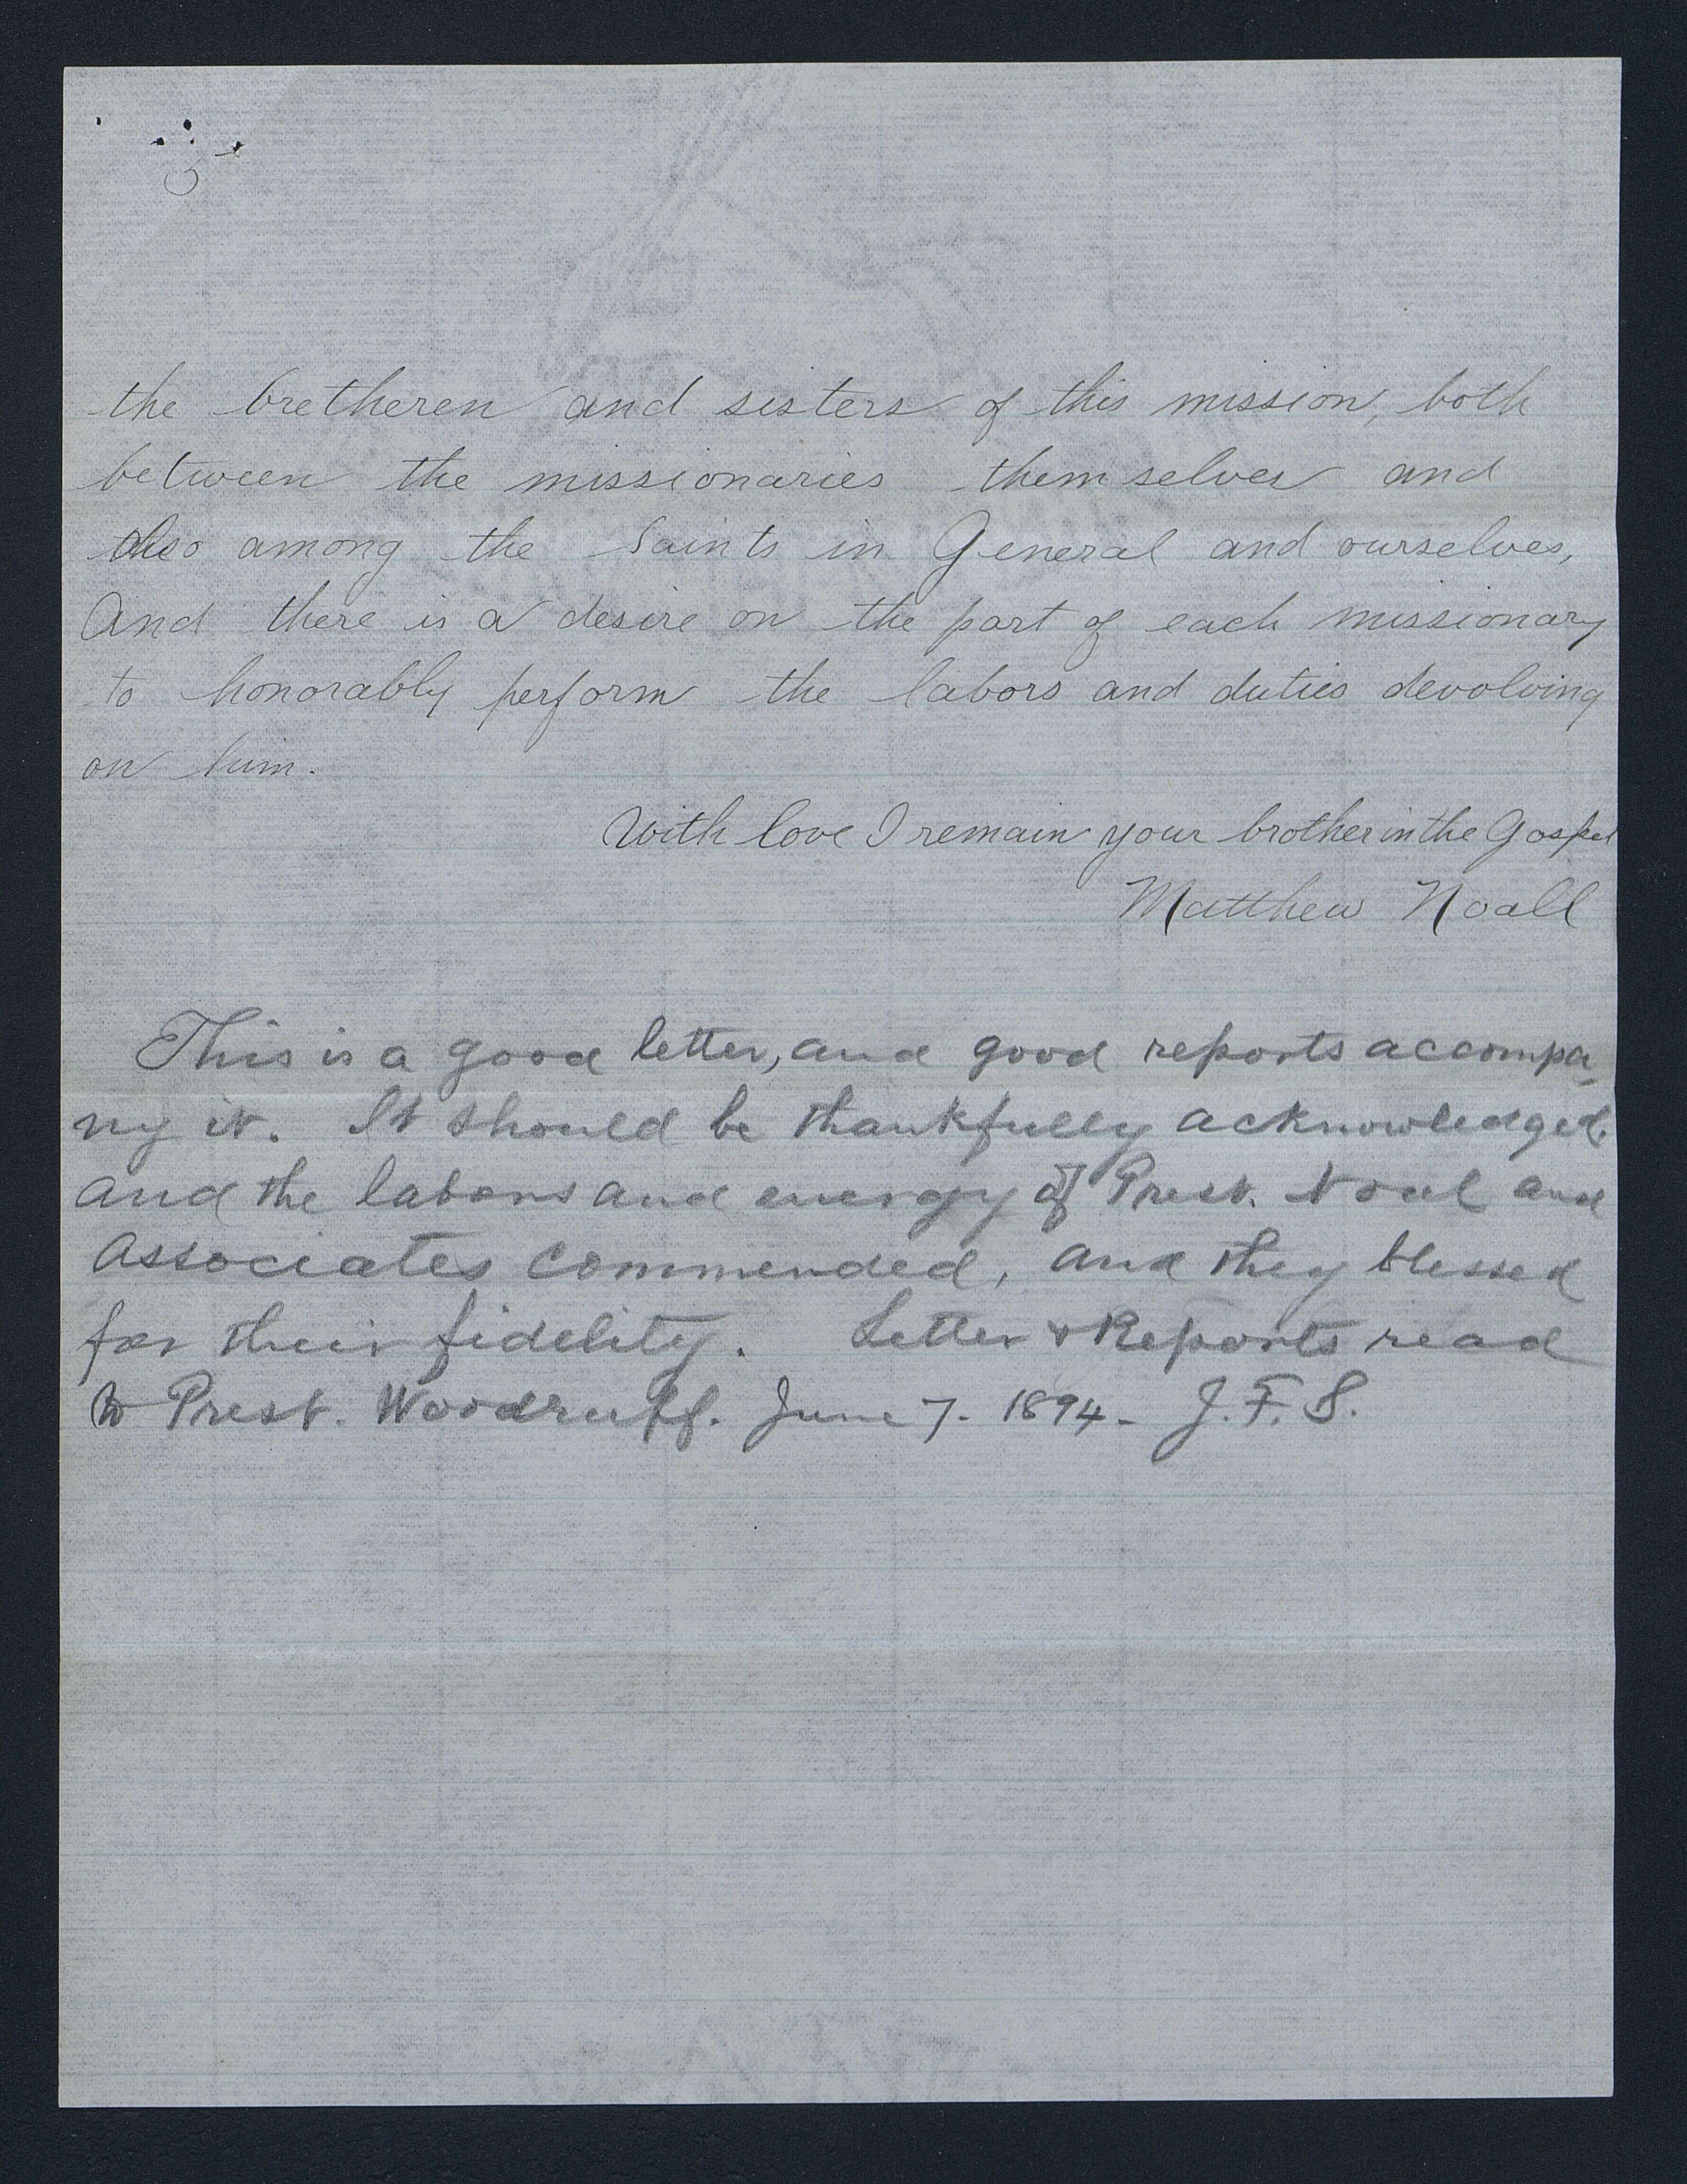 the bretheren and sisters of this mission, both
between the missionaries themselves and
also among the Saints in General and ourselves,
And there is a desire on the part of each missionary
to honorably perform the labors and duties devolving
on him.
With love I remain your brother in the Gospel
Matthew Noall
This is a good letter, and good reports accompa-
ny it. It should be thankfully acknowledged.
and the labors and energy of Prest. Noal and
associates commended, and they blessed
for their fidelity. Letter & Reports read
to Prest. Woodruff. June 7. 1894- J.F.S.